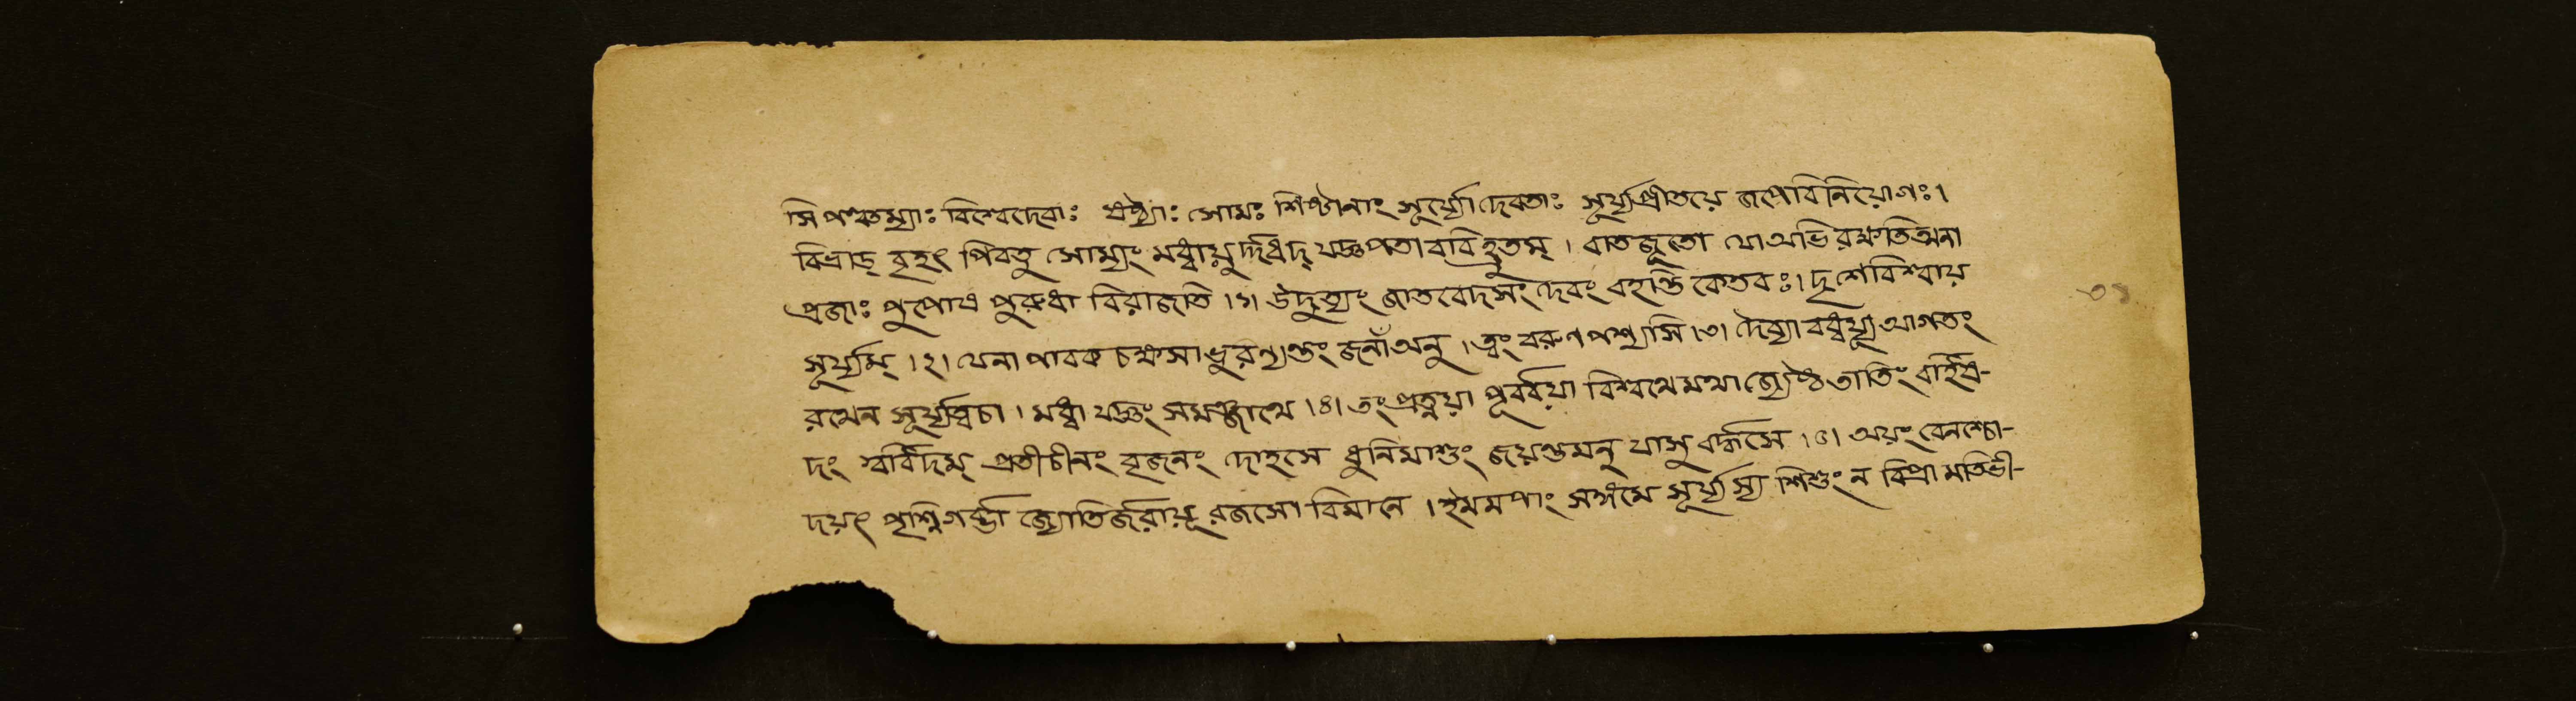 সি পঞ্চম্যাঃ বিশ্বেদেবাঃ ষষ্ঠ্যাঃ সোমঃ শিষ্টানাং সূর্য্যো দেবতাঃ সূর্য্যপ্রীতয়ে জপেবিনিয়োগঃ।
বিভ্রাড্ বৃহৎ পিবতু সোম্যং মধ্বায়ুর্দ্দধদ্ যজ্ঞপতা ববিহ্রুতম্। বাতজূতো যোঅভিরক্ষতিত্মনা
প্রজাঃ পুপোষ পুরুধা বিরাজতি।১। উদুত্যং জাতবেদসং দেবং বহন্তি কেতবঃ। দৃশেবিশ্বায়
সূর্য্যম্।২। যেনা পাবক চক্ষসা ভুরণ্যন্তং জনাঁঅনু। ত্বং বরুণ পশ্যসি।৩। দৈব্যা বধ্বর্য্যূ আগতং
রথেন সূর্য্যত্বচা। মধ্বা যজ্ঞং সমঞ্জাথে।৪। তং প্রত্নয়া পূর্ব্বয়া বিশ্বথেমথা জ্যেষ্ঠতাতিং বর্হিষ-
দং স্বর্বিদম্ প্রতীচীনং বৃজনং দোহসে ধুনিমাশুং জয়ন্তমনু যাসু বর্দ্ধসে।৫। অয়ং বেনশ্চো-
দয়ৎ পৃশ্নিগর্ব্ভা জ্যোতির্জরায়ূ রজসো বিমানে। ইমমপাং সঙ্গমে সূর্য্যস্য শিশুং ন বিপ্রা মতিভী-
৩১